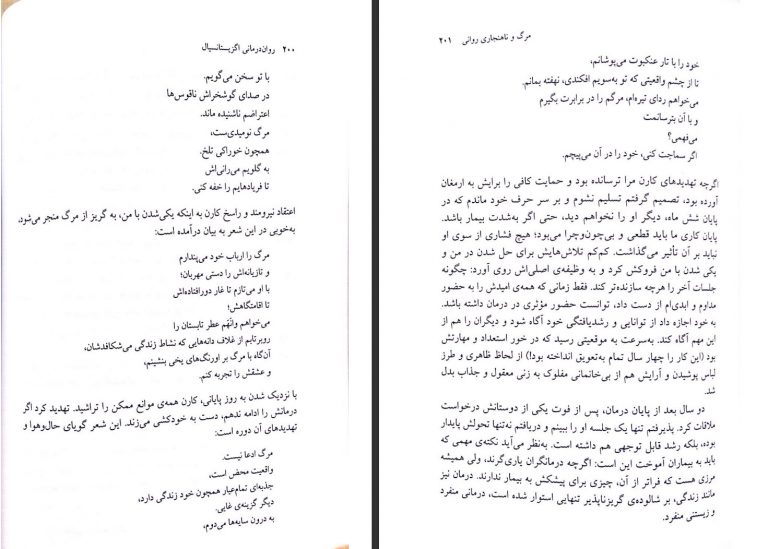 ۲۰۰ روان‌درمانی اگزیستانسیال
با تو سخن می‌گویم.
در صدای گوشخراش ناقوس‌ها
اعتراضم ناشنیده ماند.
مرگ نومیدی‌ست،
همچون خوراکی تلخ.
به گلویم می‌رانی‌اش
تا فریادهایم را خفه کنی.
اعتقاد نیرومند و راسخ کارن به اینکه یکی‌شدن با من، به گریز از مرگ منجر می‌شود،
به‌خوبی در این شعر به بیان درآمده است:
مرگ را ارباب خود می‌پندارم
و تازیانه‌اش را دستی مهربان؛
با او می‌تازم تا غار دورافتاده‌اش
تا اقامتگاهش؛
می‌خواهم وانَهَم عطر تابستان را
روبرتایم از غلاف دانه‌هایی که نشاط زندگی می‌شکافدشان،
آن‌گاه با مرگ بر اورنگ‌های یخی بنشینم،
و عشقش را تجربه کنم.
با نزدیک شدن به روز پایانی، کارن همه‌ی موانع ممکن را تراشید. تهدید کرد اگر
درمانش را ادامه ندهم، دست به خودکشی می‌زند. این شعر گویای حال‌وهوا و
تهدیدهای آن دوره است:
مرگ ادعا نیست.
واقعیت محض است،
جذبه‌ای تمام‌عیار همچون خود زندگی دارد،
دیگر گزینه‌ی غایی.
به درون سایه‌ها می‌دوم،
مرگ و ناهنجاری روانی ۲۰۱
خود را با تار عنکبوت می‌پوشانم،
تا از چشم واقعیتی که تو به‌سویم افکندی، نهفته بمانم.
می‌خواهم ردای تیره‌ام، مرگم را در برابرت بگیرم
و با آن بترسانمت
می‌فهمی؟
اگر سماجت کنی، خود را در آن می‌پیچم.
اگرچه تهدیدهای کارن مرا ترسانده بود و حمایت کافی را برایش به ارمغان
آورده بود، تصمیم گرفتم تسلیم نشوم و بر سر حرف خود ماندم که در
پایان شش ماه، دیگر او را نخواهم دید، حتی اگر به‌شدت بیمار باشد.
پایان کاری ما باید قطعی و بی‌چون‌وچرا می‌بود؛ هیچ فشاری از سوی او
نباید بر آن تأثیر می‌گذاشت. کم‌کم تلاش‌هایش برای حل شدن در من و
یکی شدن با من فروکش کرد و به وظیفه‌ی اصلی‌اش روی آورد: چگونه
جلسات آخر را هرچه سازنده‌تر کند. فقط زمانی که همه‌ی امیدش را به حضور
مداوم و ابدی‌ام از دست داد، توانست حضور مؤثری در درمان داشته باشد.
به خود اجازه داد از توانایی و رشدیافتگی خود آگاه شود و دیگران را هم از
این مهم آگاه کند. به‌سرعت به موقعیتی رسید که در خور استعداد و مهارتش
بود (این کار را چهار سال تمام به‌تعویق انداخته بود!) از لحاظ ظاهری و طرز
لباس پوشیدن و آرایش هم از بی‌خانمانی مفلوک به زنی معقول و جذاب بدل
شد.
دو سال بعد از پایان درمان، پس از فوت یکی از دوستانش درخواست
ملاقات کرد. پذیرفتم تنها یک جلسه او را ببینم و دریافتم نه‌تنها تحولش پایدار
بوده، بلکه رشد قابل توجهی هم داشته است. به‌نظر می‌آید نکته‌ی مهمی که
باید به بیماران آموخت این است: اگرچه درمانگران یاری‌گرند، ولی همیشه
مرزی هست که فراتر از آن، چیزی برای پیشکش به بیمار ندارند. درمان نیز
مانند زندگی، بر شالوده‌ی گریزناپذیر تنهایی استوار شده است، درمانی منفرد
و زیستنی منفرد.